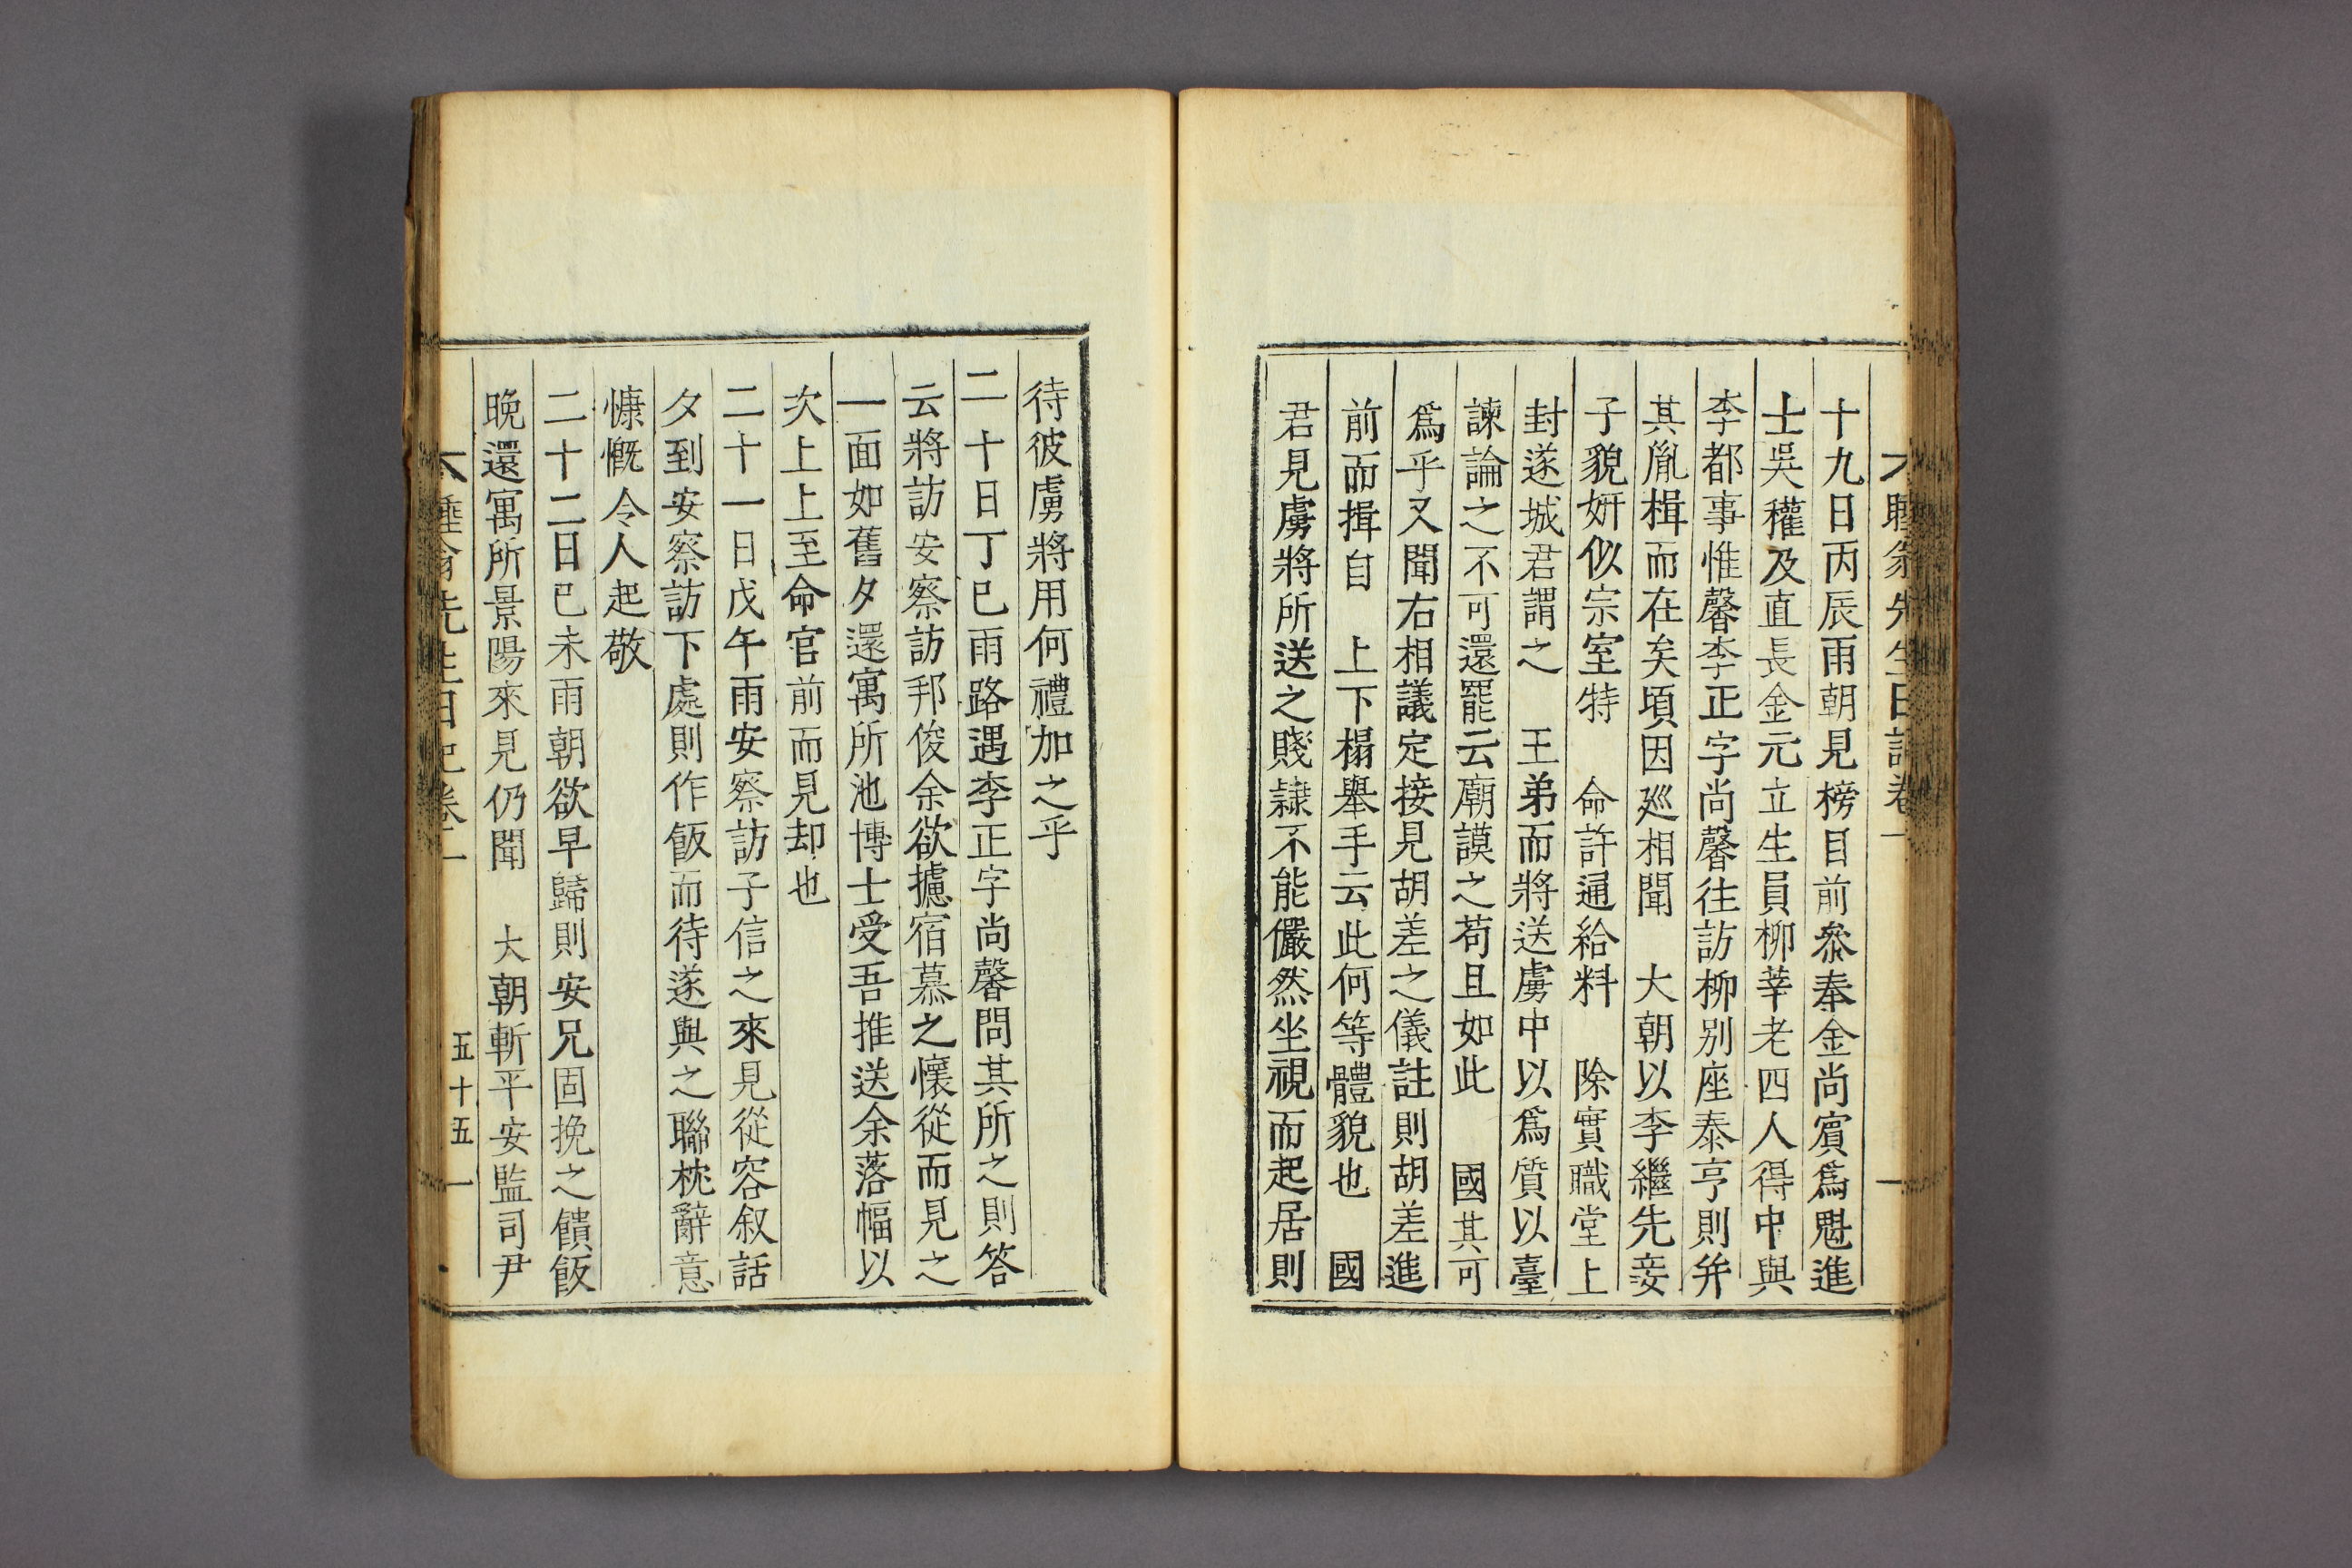 睡翁先生日記卷一
十九日丙辰雨朝見榜目前叅奉金尚賔爲魁進
士吳權及直長金元立生員柳莘老四人得中與
李都事惟馨李正字尚馨往訪柳别座泰亨則幷
其胤楫而在矣頃因廵相聞 大朝以李繼先妾
子貌妍似宗室特 命許通給料 除實職堂上
封遂城君謂之 王弟而將送虜中以爲質以臺
諫論之不可還罷云廟謨之苟且如此 國其可
爲乎又聞右相議定接見胡差之儀註則胡差進
前而揖自 上下榻舉手云此何等體貌也 國
君見虜將所送之賤隷不能儼然坐視而起居則
待彼虜將用何禮加之乎
二十日丁巳雨路遇李正字尚馨問其所之則答
云將訪安察訪邦俊余欲攄宿慕之懷從而見之
一面如舊夕還寓所池博士受吾推送余落幅以
次上上至命官前而見却也
二十一日戊午雨安察訪子信之來見從容叙話
夕到安察訪下處則作飯而待遂與之聯枕辭意
慷慨令人起敬
二十二日己未雨朝欲早歸則安兄固挽之饋飯
晩還寓所景陽來見仍聞 大朝斬平安監司尹
睡翁先生日記卷一
五十五